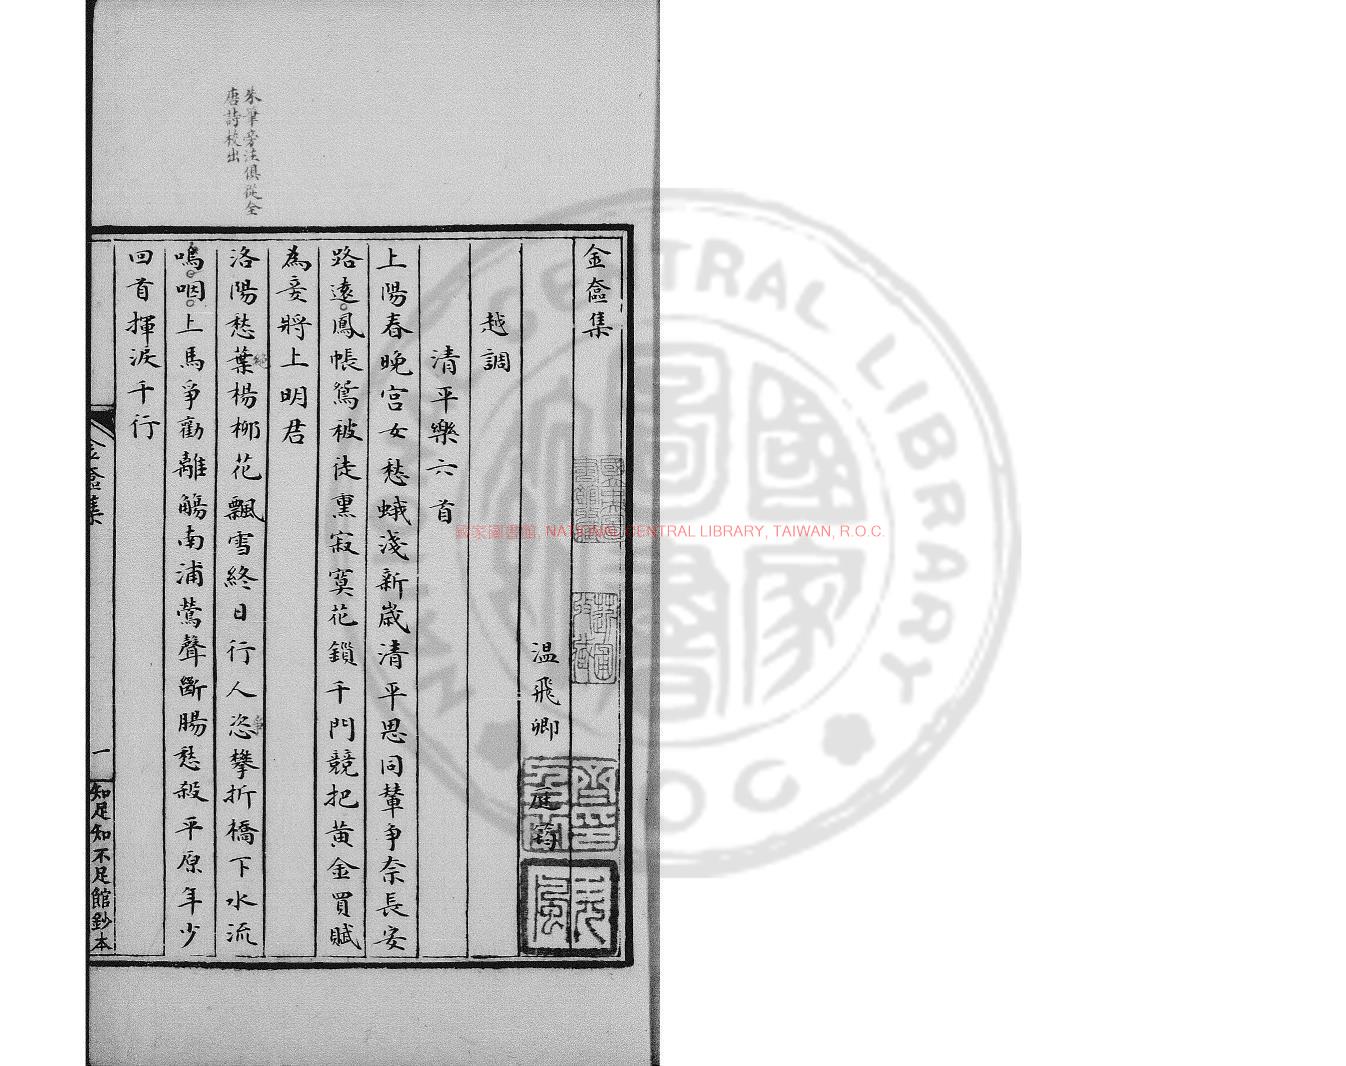 朱筆旁注俱從全
唐詩校出
金奩集
温飛卿庭筠
越調
清平樂六首
上陽春晚宮女愁蛾淺新歲清平思同輦爭奈長安
路遠鳳帳鴛被徒熏寂寞花鎖千門競把黃金買賦
為妾將上明君
洛陽愁葉楊柳花飄雪終日行人恣攀折橋下水流
絕
爭
嗚咽上馬爭勸離觴南浦鶯聲斷腸愁殺平原年少
回首揮淚千行
金奩集
一
知足知不足館鈔本
國家圖書館, NATIONAL CENTRAL LIBRARY, TAIWAN, R.O.C.